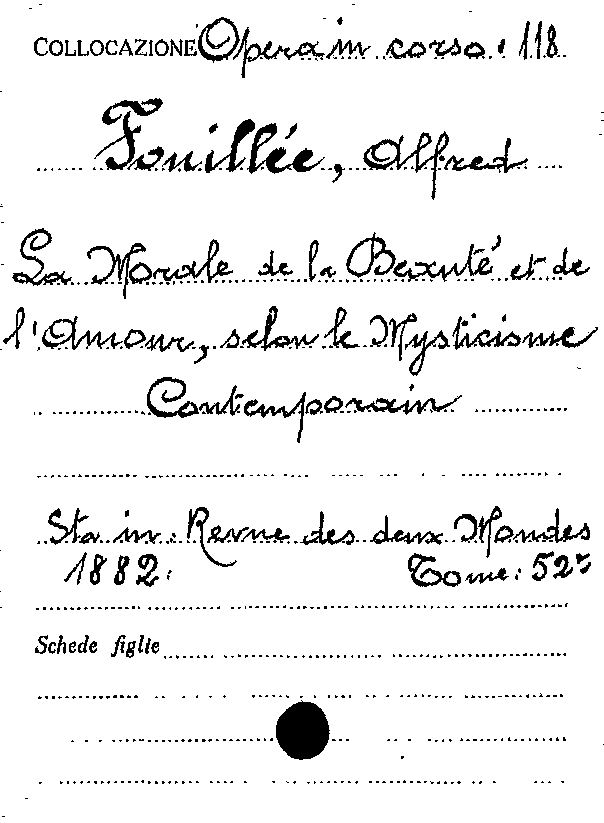 COLLOCAZIONE Opera in corso: 118
Fouillée, Alfred
La Morale de la Beauté et de
l'Amour, selon le Mysticisme
Contemporain
Sta in: Revue des deux Mondes
1882. Tome: 52º
Schede figlie